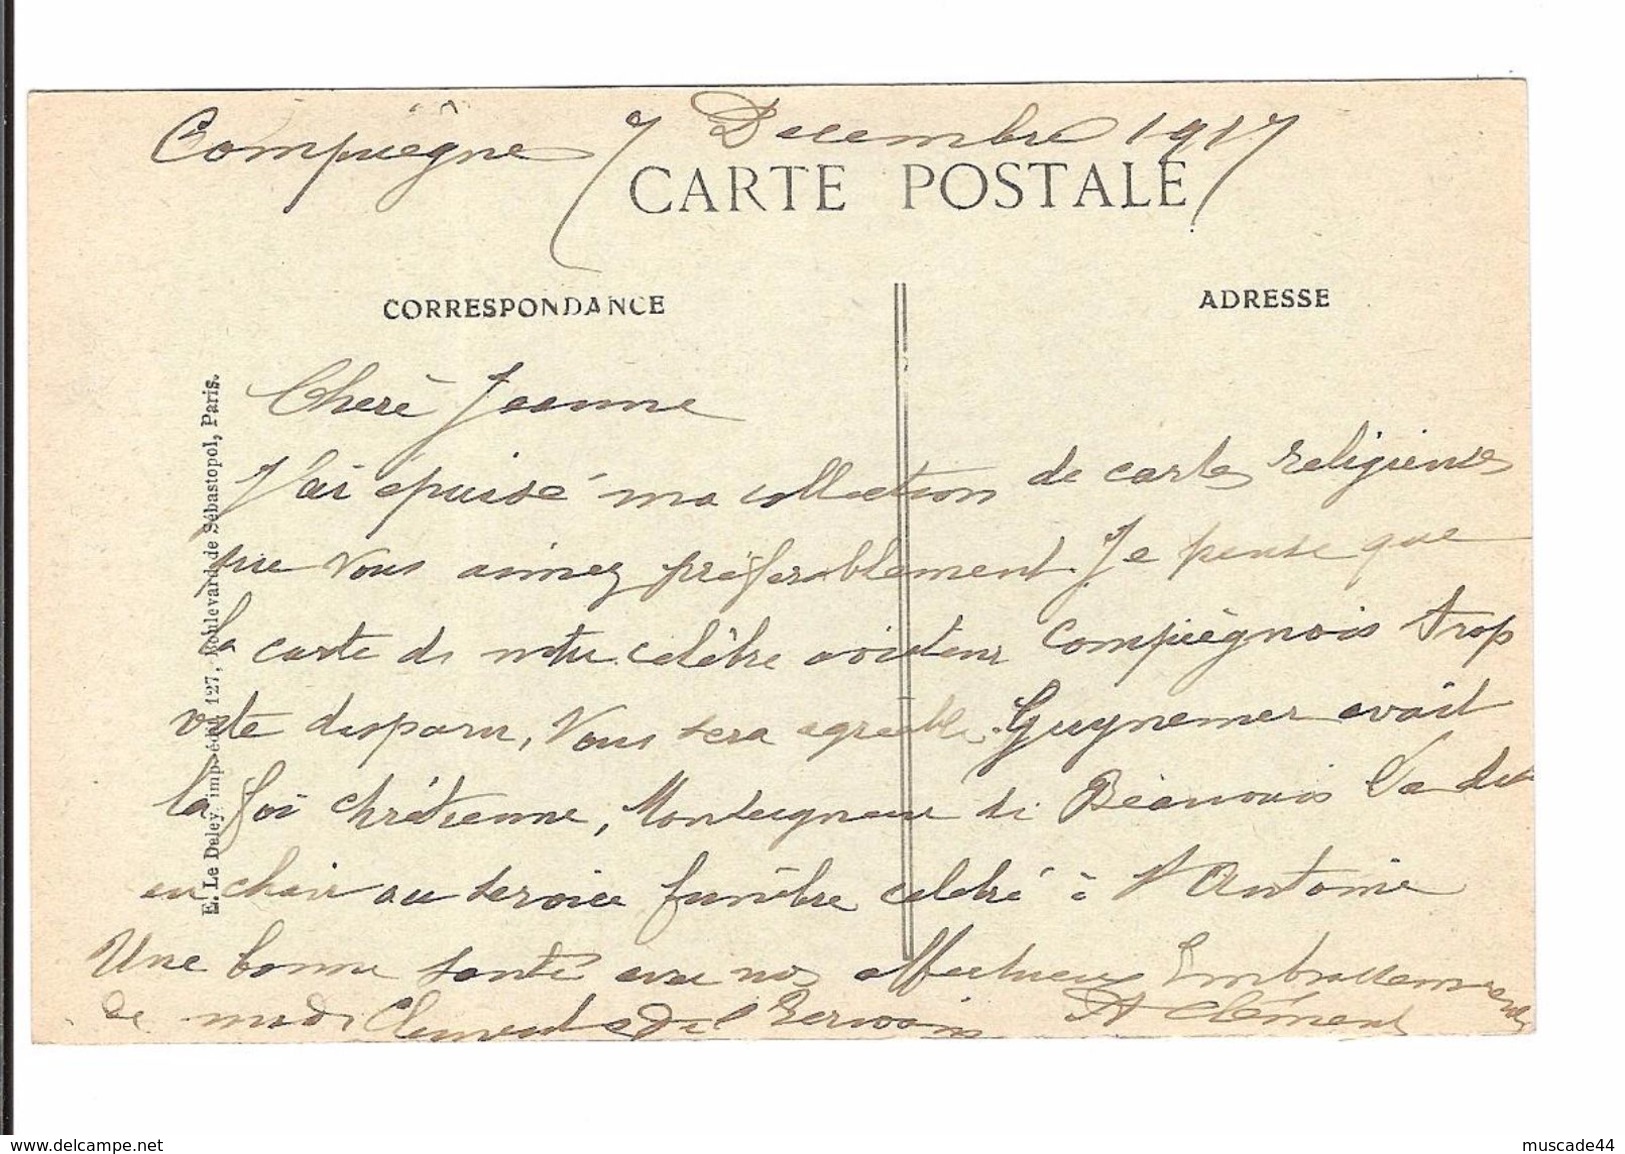 Compiègne 7 Decembre 1917
CARTE POSTALE
CORRESPONDANCE
ADRESSE
Cheré Jeanne
J'ai épuisé ma collection de cartes religieuses
que vous aimez préférablement. Je pense que
la carte de notre célèbre aviateur Compiègnois trop
vite disparu, vous sera agréable. Guynemer avait
la foi chrétienne, Monseigneur de Beauvais l'a dit
en chair au service funèbre célébré à St Antoine
Une bonne santé avec nos affectueux Embrassements
de Clément
E. Le Deley, imp.-édit., 127, Boulevard de Sébastopol, Paris.
www.delcampe.net
muscade44